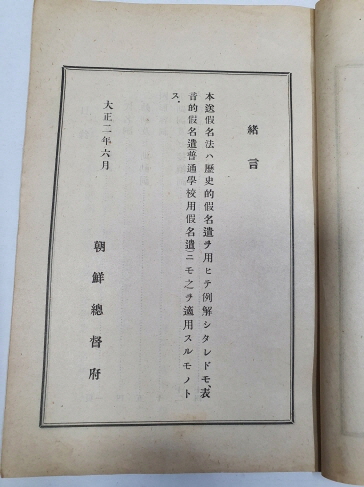 緒言
本送假名法ハ歷史的假名遣ヲ用ヒテ例解シタレドモ、表
音的假名遣普通學校用假名遣ニモ之ヲ適用スルモノト
ス.
大正二年六月
朝鮮總督府